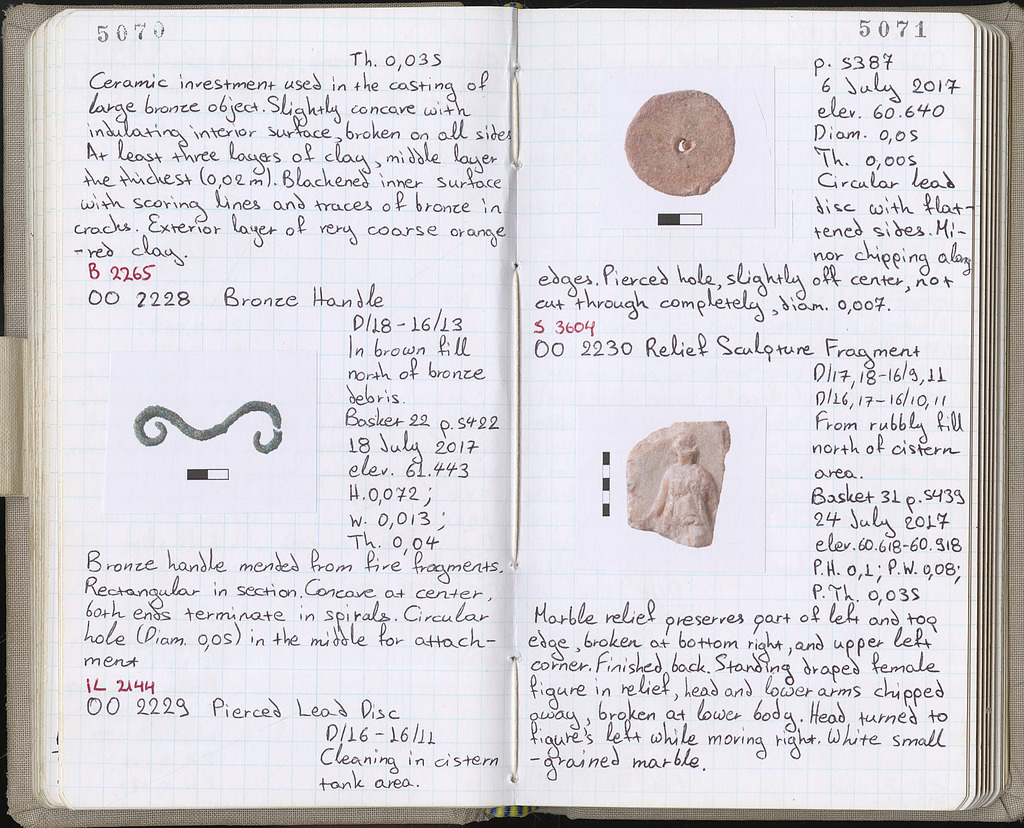 5070
Th. 0,035
Ceramic investment used in the casting of
large bronze object. Slightly concave with
indulating interior surface, broken on all sides
At least three layers of clay, middle layer
the thickest (0,02m). Blackened inner surface
with scoring lines and traces of bronze in
cracks. Exterior layer of very coarse orange
-red clay.
B 2265
OO 2228 Bronze Handle
D/18-16/13
In brown fill
north of bronze
debris.
Basket 22 p.5422
18 July 2017
elev. 61.443
H.0,072;
W. 0,013;
Th. 0,04
Bronze handle mended from five fragments.
Rectangular in section. Concave at center,
both ends terminate in spirals. Circular
hole (Diam. 0,05) in the middle for attach-
ment
IL 2144
OO 2229 Pierced Lead Disc
D/16-16/11
Cleaning in cistern
tank area.
5071
p. 5387
6 July 2017
elev. 60.640
Diam. 0,05
Th. 0,005
Circular lead
disc with flat-
tened sides. Mi-
nor chipping along
edges. Pierced hole, slightly off center, not
cut through completely, diam. 0,007.
S 3604
OO 2230 Relief Sculpture Fragment
D/17,18-16/9,11
D/16,17-16/10,11
From rubbly fill
north of cistern
area.
Basket 31 p.5439
24 July 2017
elev.60.618-60.918
P.H. 0,1; P.W. 0,08;
P.Th. 0,035
Marble relief preserves part of left and top
edge, broken at bottom right, and upper left
corner. Finished back. Standing draped female
figure in relief, head and lower arms chipped
away, broken at lower body. Head turned to
figure's left while moving right. White small
-grained marble.